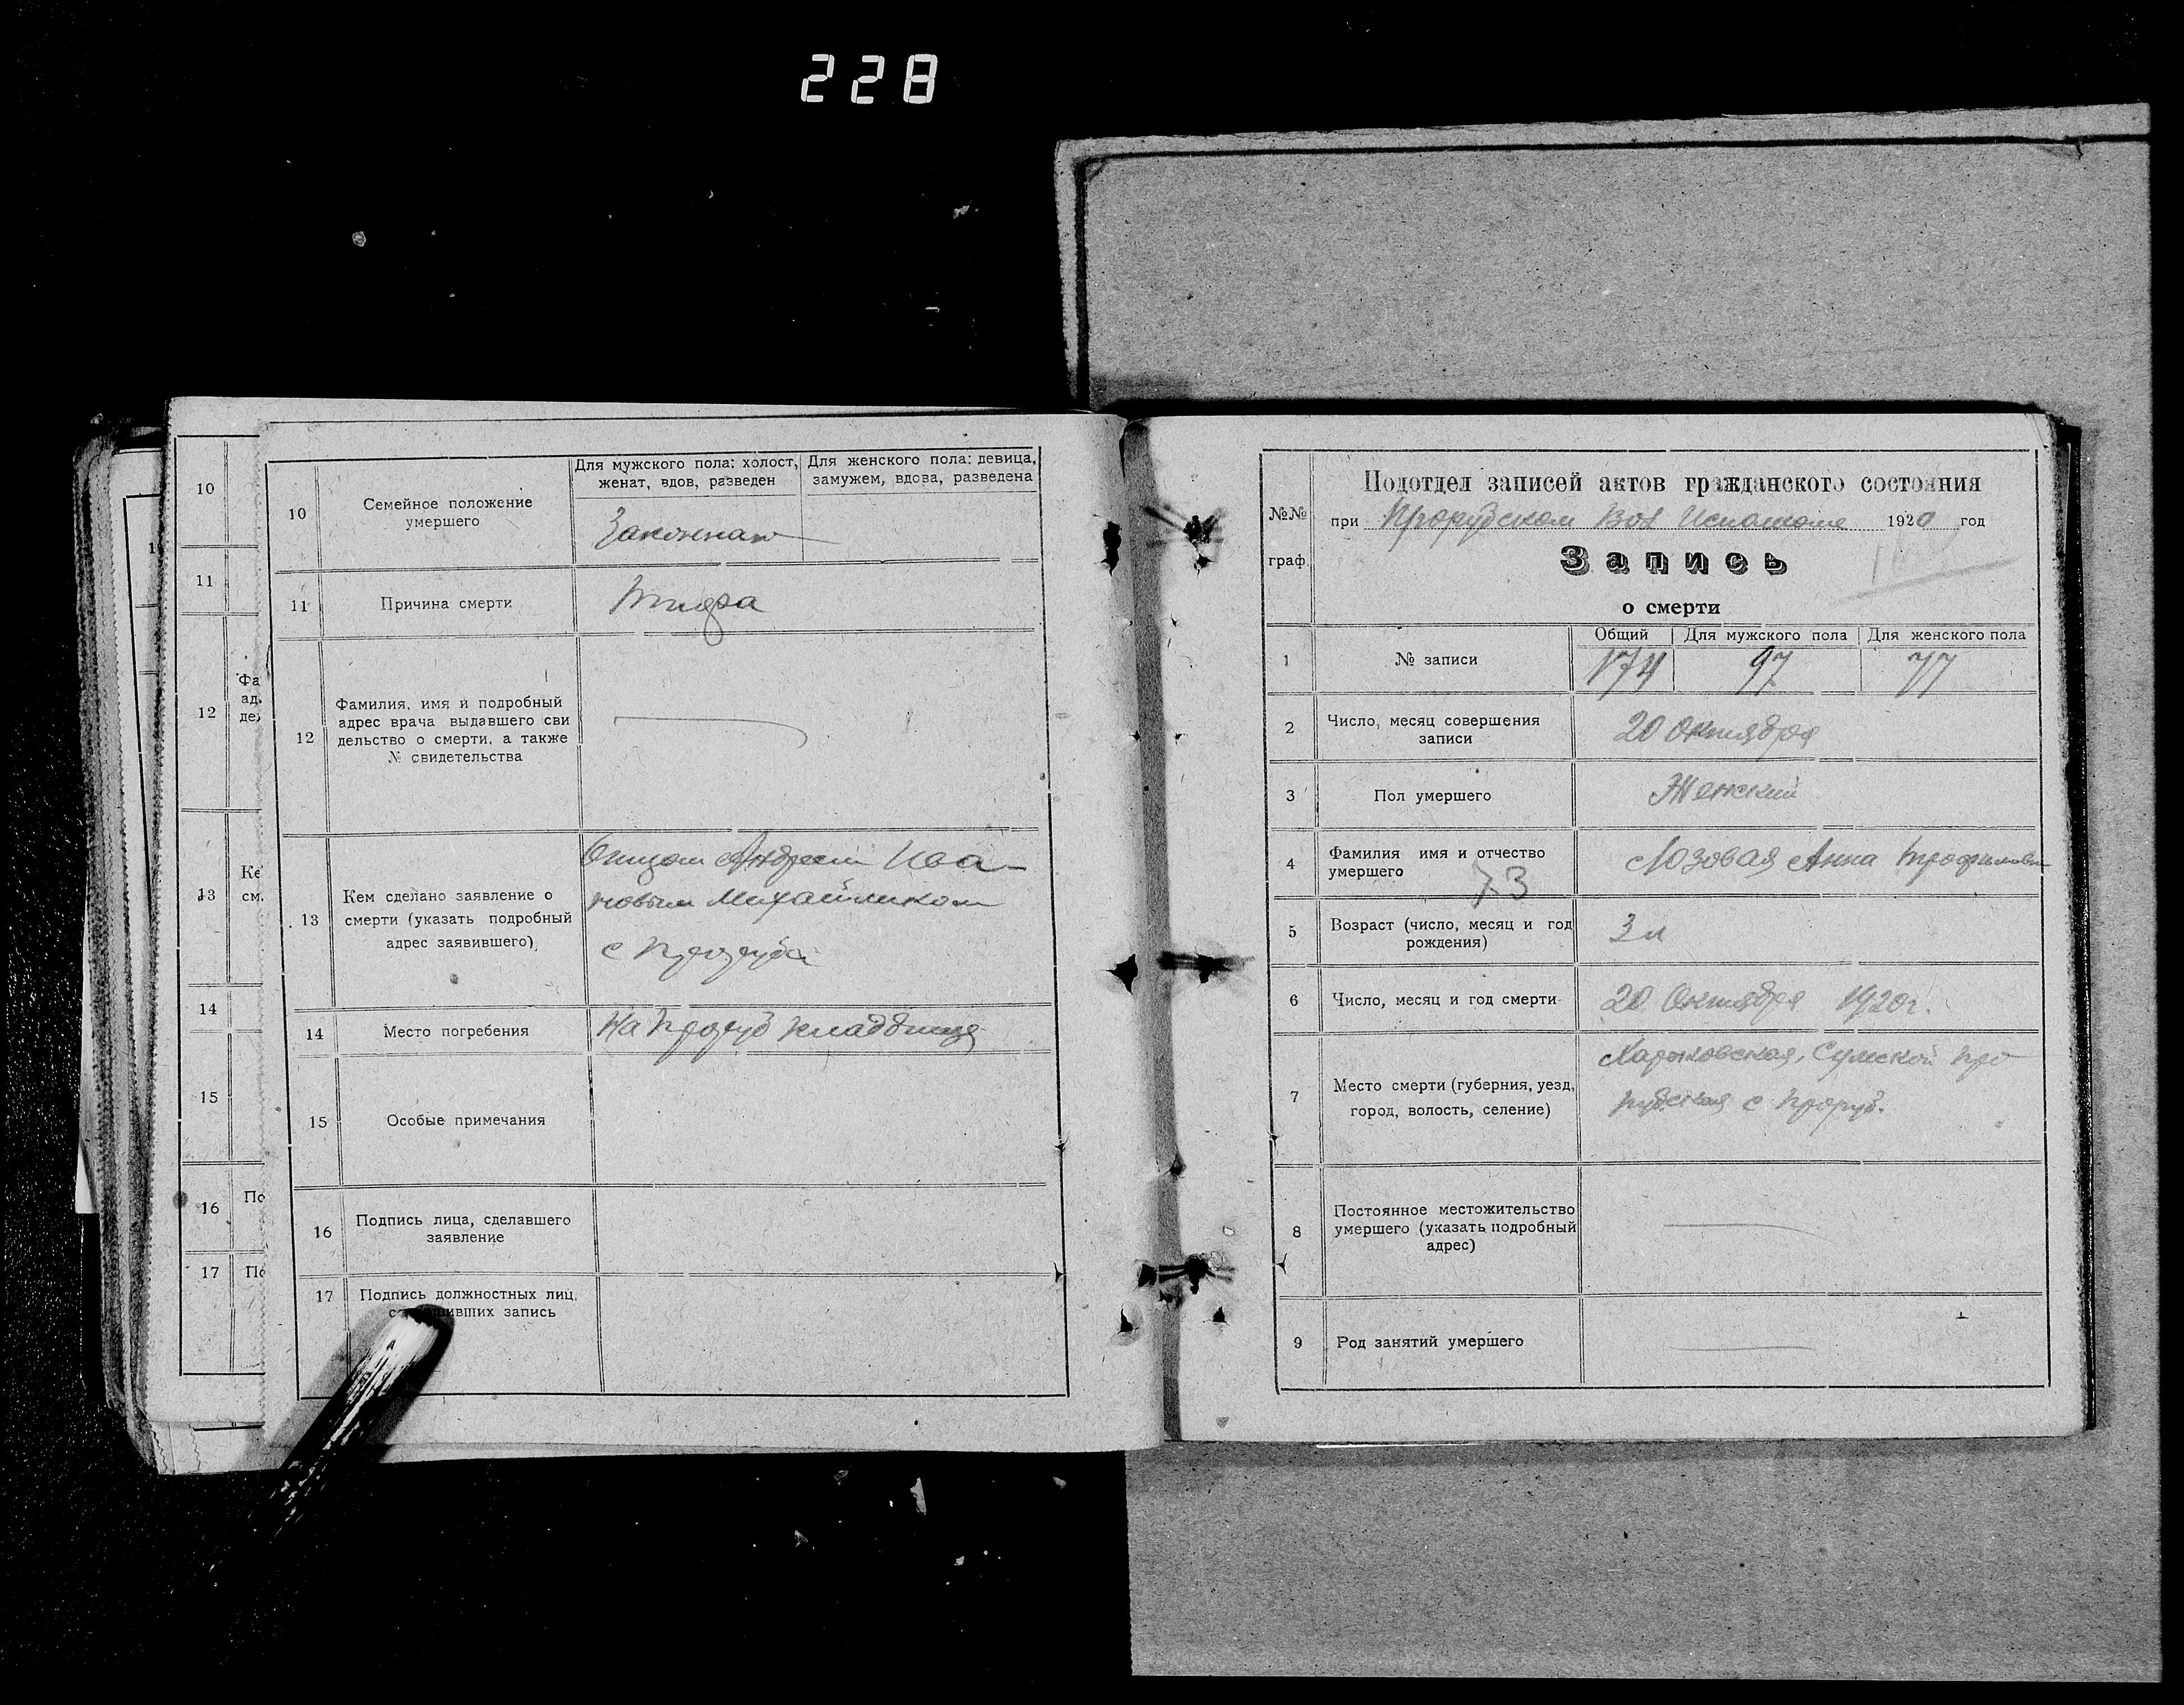 228
10
11
12
13
14
15
16
17
Фа
ад.
Ке
см.
По
По
10
Семейное положение
умершего
Для мужского пола: холост,
женат, вдов, разведен
Для женского пола: девица,
замужем, вдова, разведена
Законная
11
Причина смерти
12
Фамилия, имя и подробный
адрес врача выдавшего сви
дельство о смерти, а также
№ свидетельства
13
Кем сделано заявление о
смерти (указать подробный
адрес заявившего)
Отцом Андреем Ива
новым Михайликом
с Проруба
14
Место погребения
На Проруб кладбище
15
Особые примечания
16
Подпись лица, сделавшего
заявление
17
Подпись должностных лиц,
запись
№№
граф.
Подотдел записей актов гражданского состояния
при Прорубском Вол Исполкоме 1920 год
Запись
о смерти
1
№ записи
Общий
Для мужского пола
Для женского пола
174
97
77
2
Число, месяц совершения
записи
20 Октября
3
Пол умершего
Женский
4
Фамилия имя и отчество
умершего
73
Лозовая Анна Трофимовн
5
Возраст (число, месяц и год
рождения)
3 л
6
Число, месяц и год смерти
20 Октября 1920 г.
7
Место смерти (губерния, уезд,
город, волость, селение)
Харьковская, Сумской Про
рубская с Проруб.
8
Постоянное местожительство
умершего (указать подробный
адрес)
9
Род занятий умершего